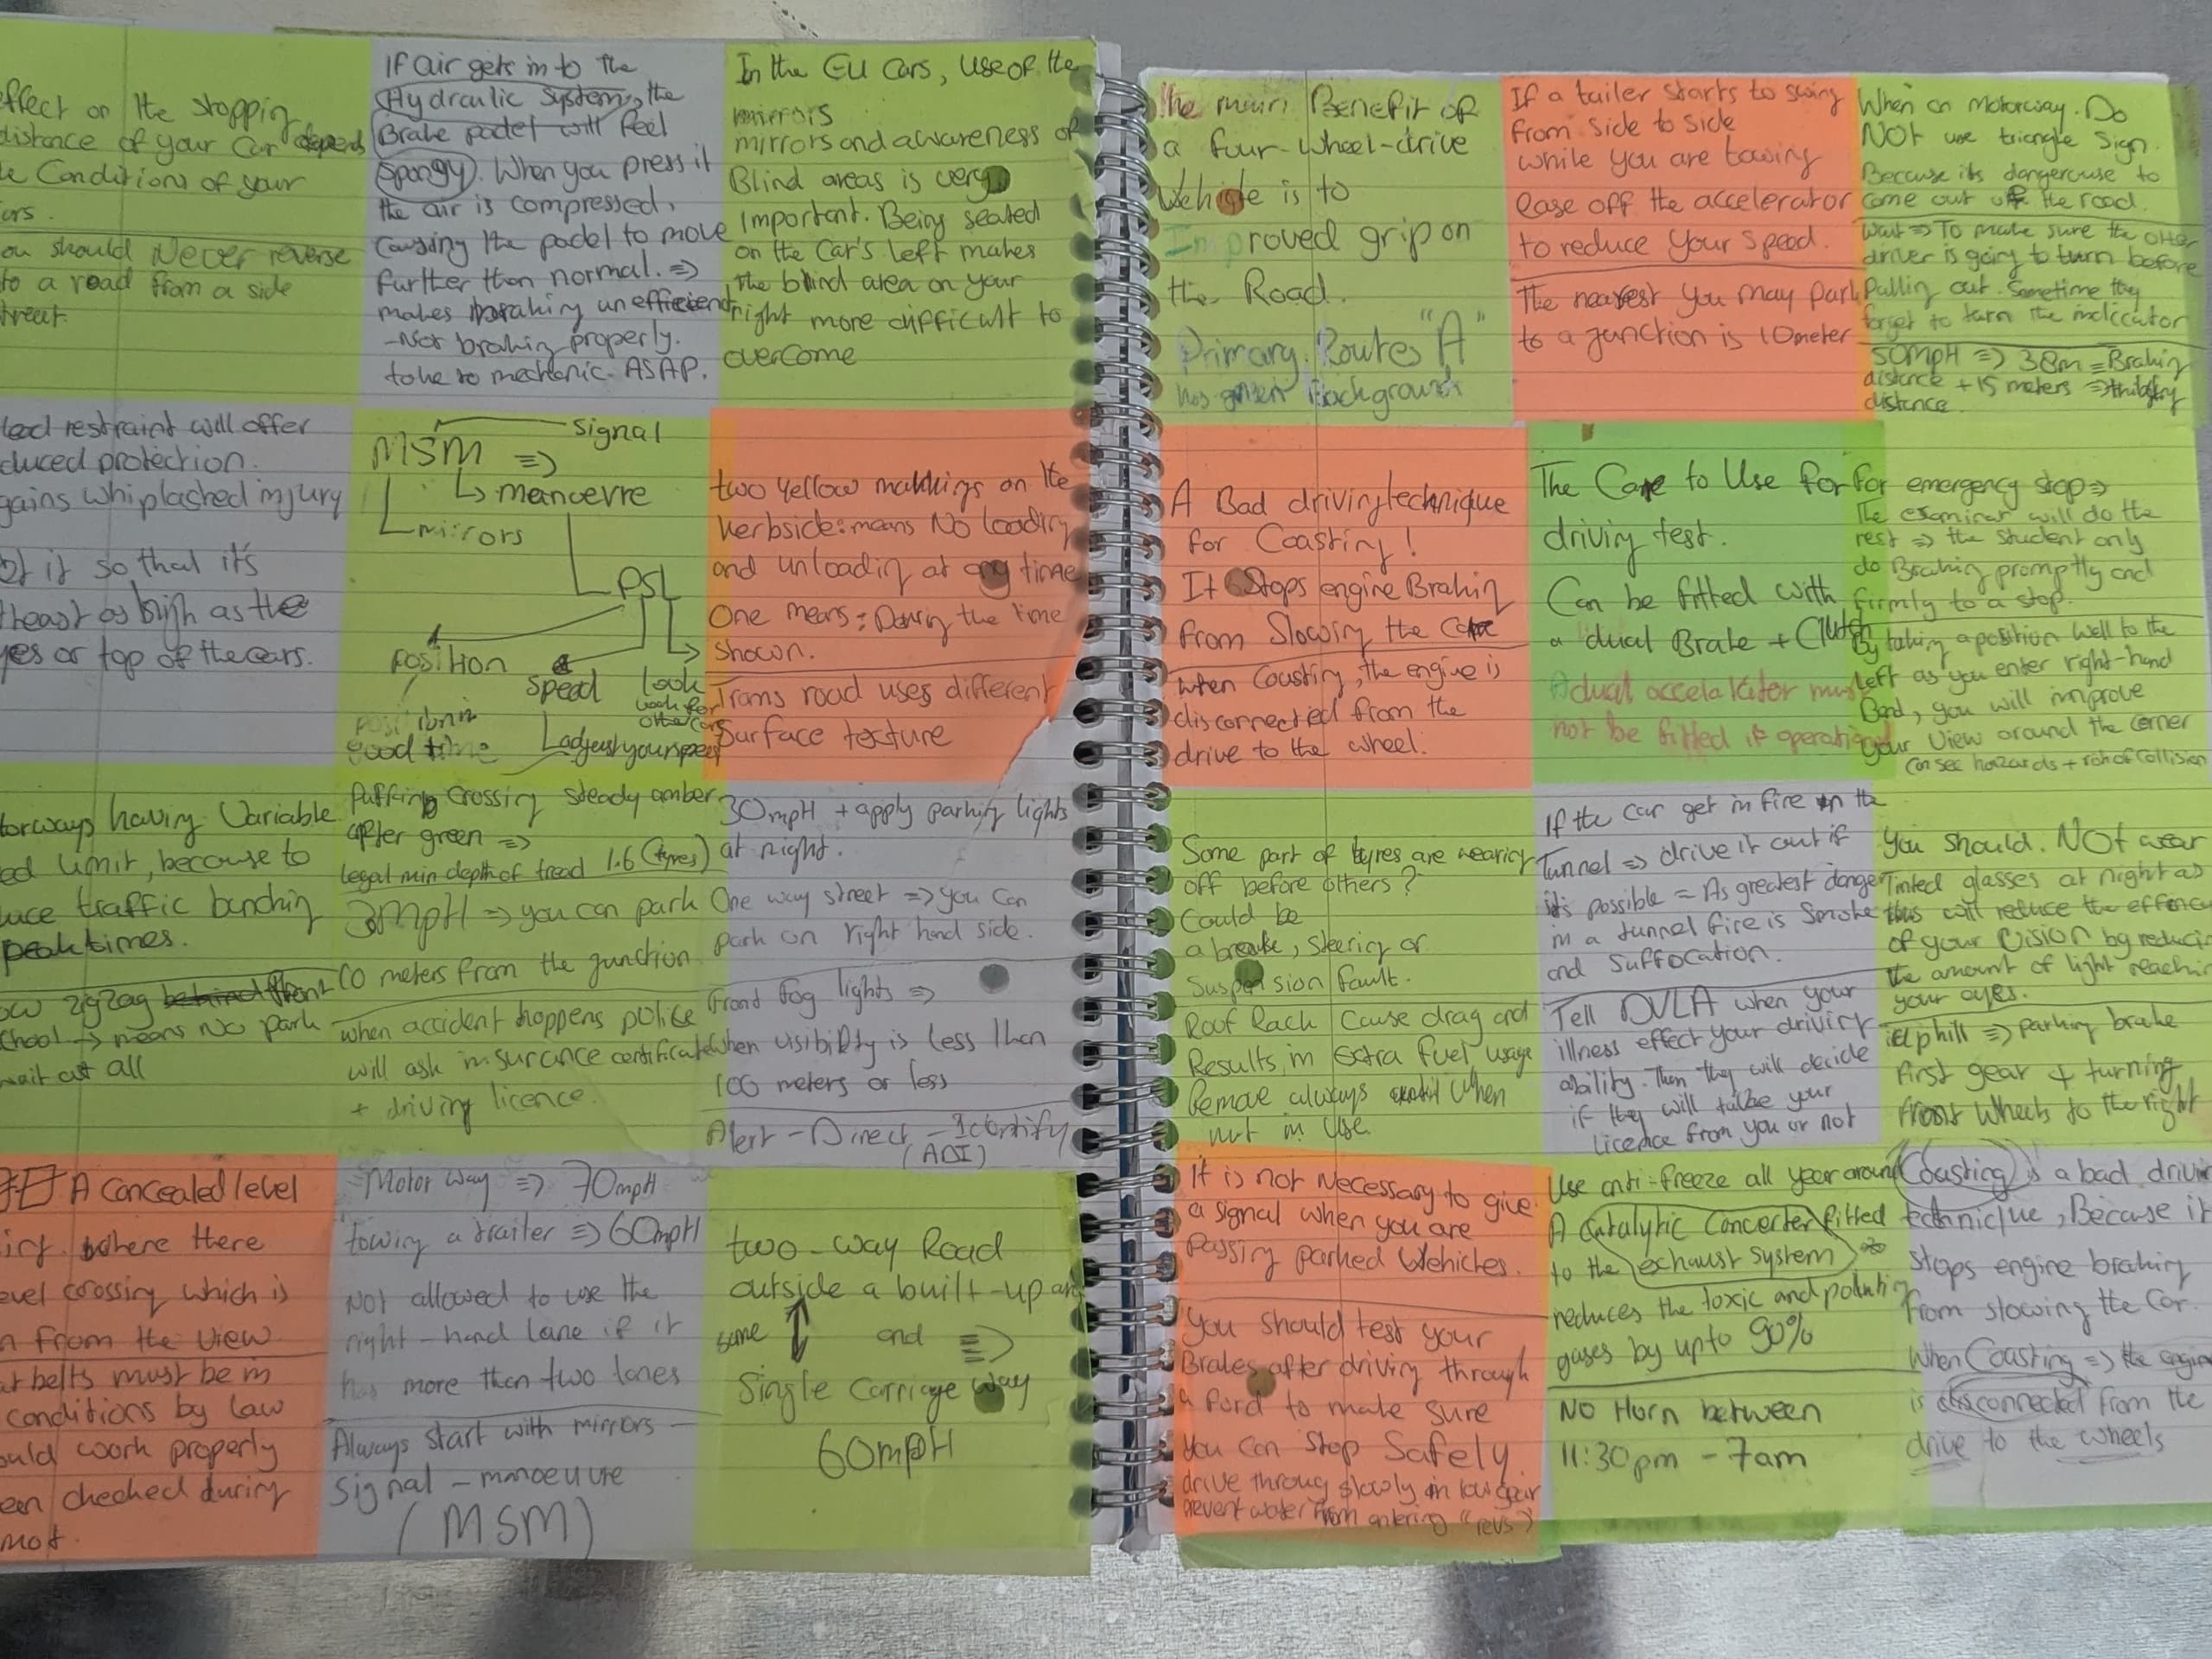 effect on the stopping
distance of your Car depends
Conditions of your
ou should Never reverse
to a road from a side
If air gets in to the
Hydraulic System, the
Brake padel will feel
Spongy. When you press it
the air is compressed,
Causing the padel to move
further then normal. ⇒
makes braking unefficient
-Not braking properly.
take to mechanic ASAP.
In the EU Cars, Use of the
mirrors
mirrors and awareness of
Blind areas is very
important. Being seated
on the Car's left makes
the blind area on your
right more difficult to
overcome
lead restraint will offer
duced protection.
gains whiplashed injury
of it so that it's
t least as high as the
yes or top of the ears.
signal
MSM ⇒
manoevre
mirrors
PSL
position
speed
look
look for
other cars
position in
good time
adjust your speed
two Yellow markings on the
kerbside: means No Loading
and unloading at any time
One means: During the time
shown.
Trams road uses different
Surface texture
torways having Variable
ed limit, because to
uce traffic bunching
peak times.
ow zigzag behind front
chool → means No park
wait at all
Puffing crossing steady amber
after green ⇒
legal min depth of tread 1.6 (tyres)
30mpH ⇒ you can park
10 meters from the junction
when accident happens police
will ask insurance certificate
+ driving licence.
30mpH + apply parking lights
at night.
One way street ⇒ you can
park on right hand side.
Front Fog lights ⇒
when visibility is less then
100 meters or less
Alert - Direct - Identify
(ADI)
A Concealed level
ing. where there
evel crossing which is
n from the view
at belts must be in
conditions by law
ould work properly
een checked during
mot.
Motor way ⇒ 70mpH
towing a trailer ⇒ 60mpH
Not allowed to use the
right-hand lane if it
has more then two lanes
Always start with mirrors -
Signal - manoeuvre
(MSM)
two-way Road
outside a built-up are
same and ⇒
Single Carriage way
60mpH
the main Benefit of
a four-wheel-drive
Vehicle is to
Improved grip on
the Road.
Primary Routes "A"
has green Background
If a tailer starts to swing
from side to side
while you are towing
ease off the accelerator
to reduce your speed.
The nearest you may park
to a junction is 10meter
When on Motorway. Do
NOT use triangle Sign.
Because its dangerouse to
come out of the road.
Wait ⇒ To make sure the other
driver is going to turn before
Pulling out. Sometime they
forget to turn the indiccator
50MPH ⇒ 38m = Braking
distance + 15 meters ⇒ thinking
distance
A Bad driving technique
for Coasting!
It Stops engine Braking
from Slowing the Care
when Coasting, the engine is
disconnected from the
drive to the wheel.
The Care to Use for
driving test.
Can be fitted with
a dual Brake + Clutch
A dual accelakator must
not be fitted if operating
for emergency stop ⇒
The examiner will do the
rest ⇒ the student only
do Braking promptly and
firmly to a stop.
By taking a position well to the
left as you enter right-hand
Bend, you will improve
your View around the corner
Can see hazards + risk of collision
Some part of tyres are wearing
off before others?
Could be
a breake, steering or
Suspension fault.
Roof Rack Cause drag and
Results in extra fuel usage
Remove always when
not in use
If the Car get in fire in the
Tunnel ⇒ drive it out if
it's possible = As greatest danger
in a tunnel fire is Smoke
and suffocation.
Tell DVLA when your
illness effect your driving
ability. Then they will decide
if they will take your
licence from you or not
you should. NOT wear
Tinted glasses at night as
this will reduce the efficiency
of your Vision by reducing
the amount of light reaching
your eyes.
uphill ⇒ parking brake
First gear + turning
front wheels to the right
It is not Necessary to give
a signal when you are
Passing parked Vehicles.
You should test your
Brakes after driving through
a ford to make sure
you Can Stop Safely
drive throug slowly in low gear
prevent water from entering "revs"
Use anti-freeze all year around
A Catalytic Converter fitted
to the exhaust system
reduces the toxic and polluting
gases by upto 90%
No Horn between
11:30pm - 7am
Coasting is a bad driving
technique, Because it
stops engine braking
from slowing the Car.
When Coasting ⇒ the engine
is disconnected from the
drive to the wheels